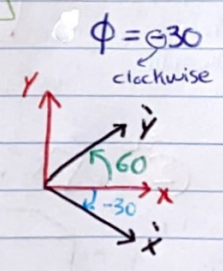 φ = -30
clockwise
Y
Ỳ
60
X
-30
Ẋ